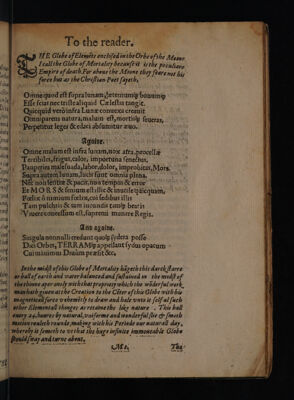 To the reader.
THE Globe of Elemēts enclosed in the Orbe of the Moone
I call the Globe of Mortality because it is the peculiare
Empire of death. For aboue the Moone they feare not his
force but as the Christian Poet sayeth,
Omne quod est supra lunam, æternumq́ bonumq́
Esse scias nec triste aliquid Cælestia tangit.
Quicquid verò infra Lunæ conuexa creauit
Omniparens natura, malum est, mortisq́ seueras,
Perpetitur leges & edaci absumitur æuo.
Againe.
Omne malum est infra lunam, nox atra, procellæ
Terribiles, frigus, calor, importuna senectus.
Pauperies malesuada, labor, dolor, improbitas, Mors.
Supra autem lunam, lucis sunt omnia plena.
Nec non lætitiæ & pacis, non tempus & error
Et MORS & senium est illic & inutile quicquam,
Fœlix ô nimium fœlix, cui sedibus illis
Tam pulchris & tam iucundis tamq́ beatis
Viuere concessum est, supremi munere Regis.
And againe.
Singula nonnulli credunt quoq́ sydera posse
Dici Orbes, TERRAMq́ appellant sydus opacum
Cui minimus Diuûm præsit &c.
In the midst of this Globe of Mortality hāgeth this darck starre
or ball of earth and water balanced and sustained in the midst of
the thinne ayer onely with that propriety which the wōderful work-
man hath giuen at the Creation to the Cēter of this Globe with his
magneticall force vehemētly to draw and hale vnto it self al such
other Elementall thinges as retaine the like nature. This ball
euery 24. houres by naturall, vniforme and wonderfull slie & smoth
motion rouleth rounde, making with his Periode our naturall day,
whereby it seemeth to vs that the huge infinite immoueable Globe
should sway and turne about.
M1. The